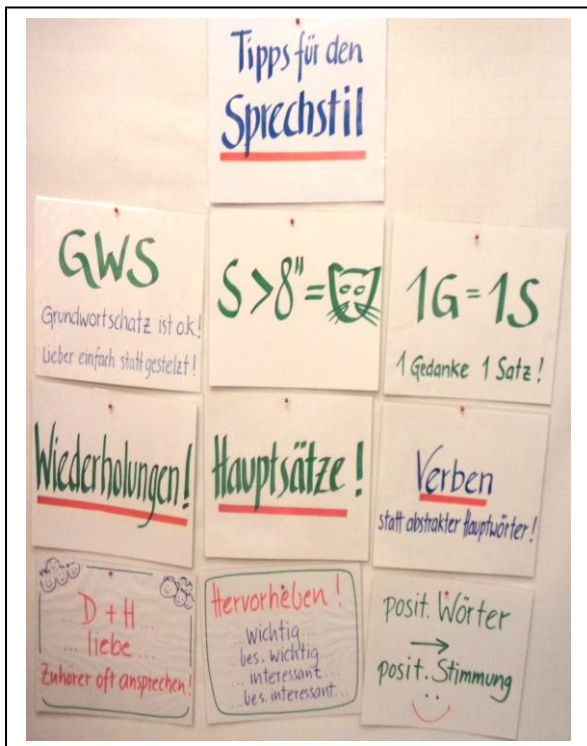 Tipps für den
Sprechstil
GWS
Grundwortschatz ist o.k.!
Lieber einfach statt gestelzt!
S>8"=
1G=1S
1 Gedanke 1 Satz!
Wiederholungen!
Hauptsätze!
Verben
statt abstrakter Hauptwörter!
... D + H ...
... liebe ....
Zuhörer oft ansprechen!
Hervorheben!
... wichtig ...
... bes. wichtig ...
... interessant ...
... bes. interessant ...
posit. Wörter
→
posit. Stimmung